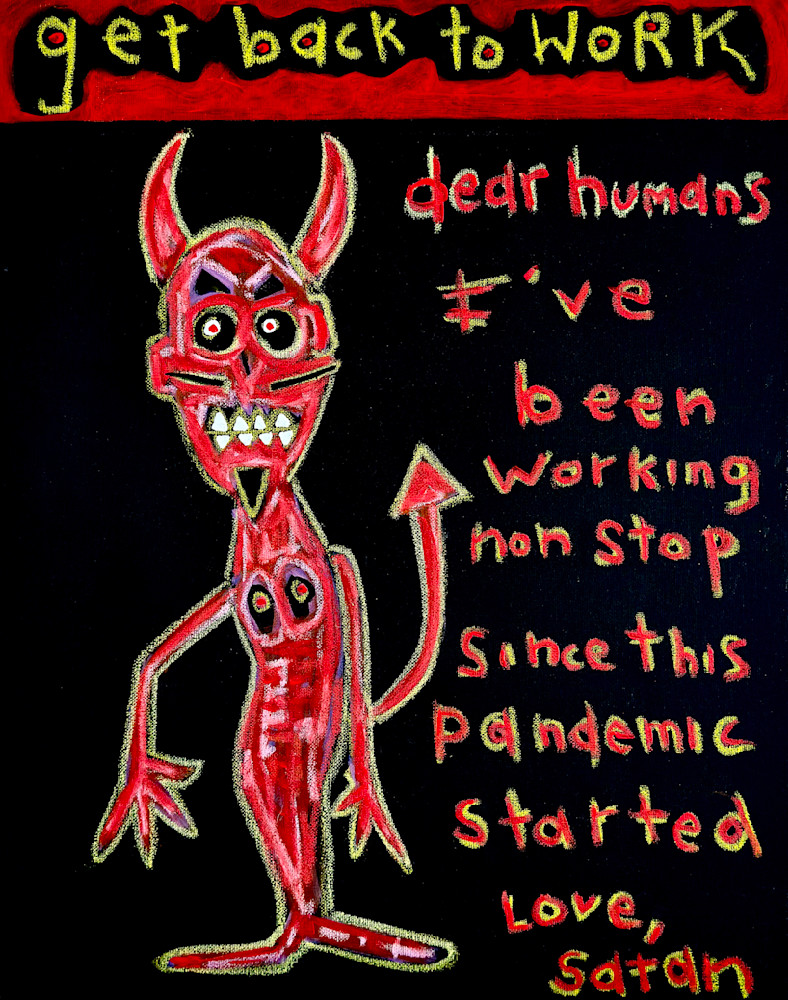 get back to WORK
dear humans
I've
been
working
non stop
since this
pandemic
started
Love,
satan